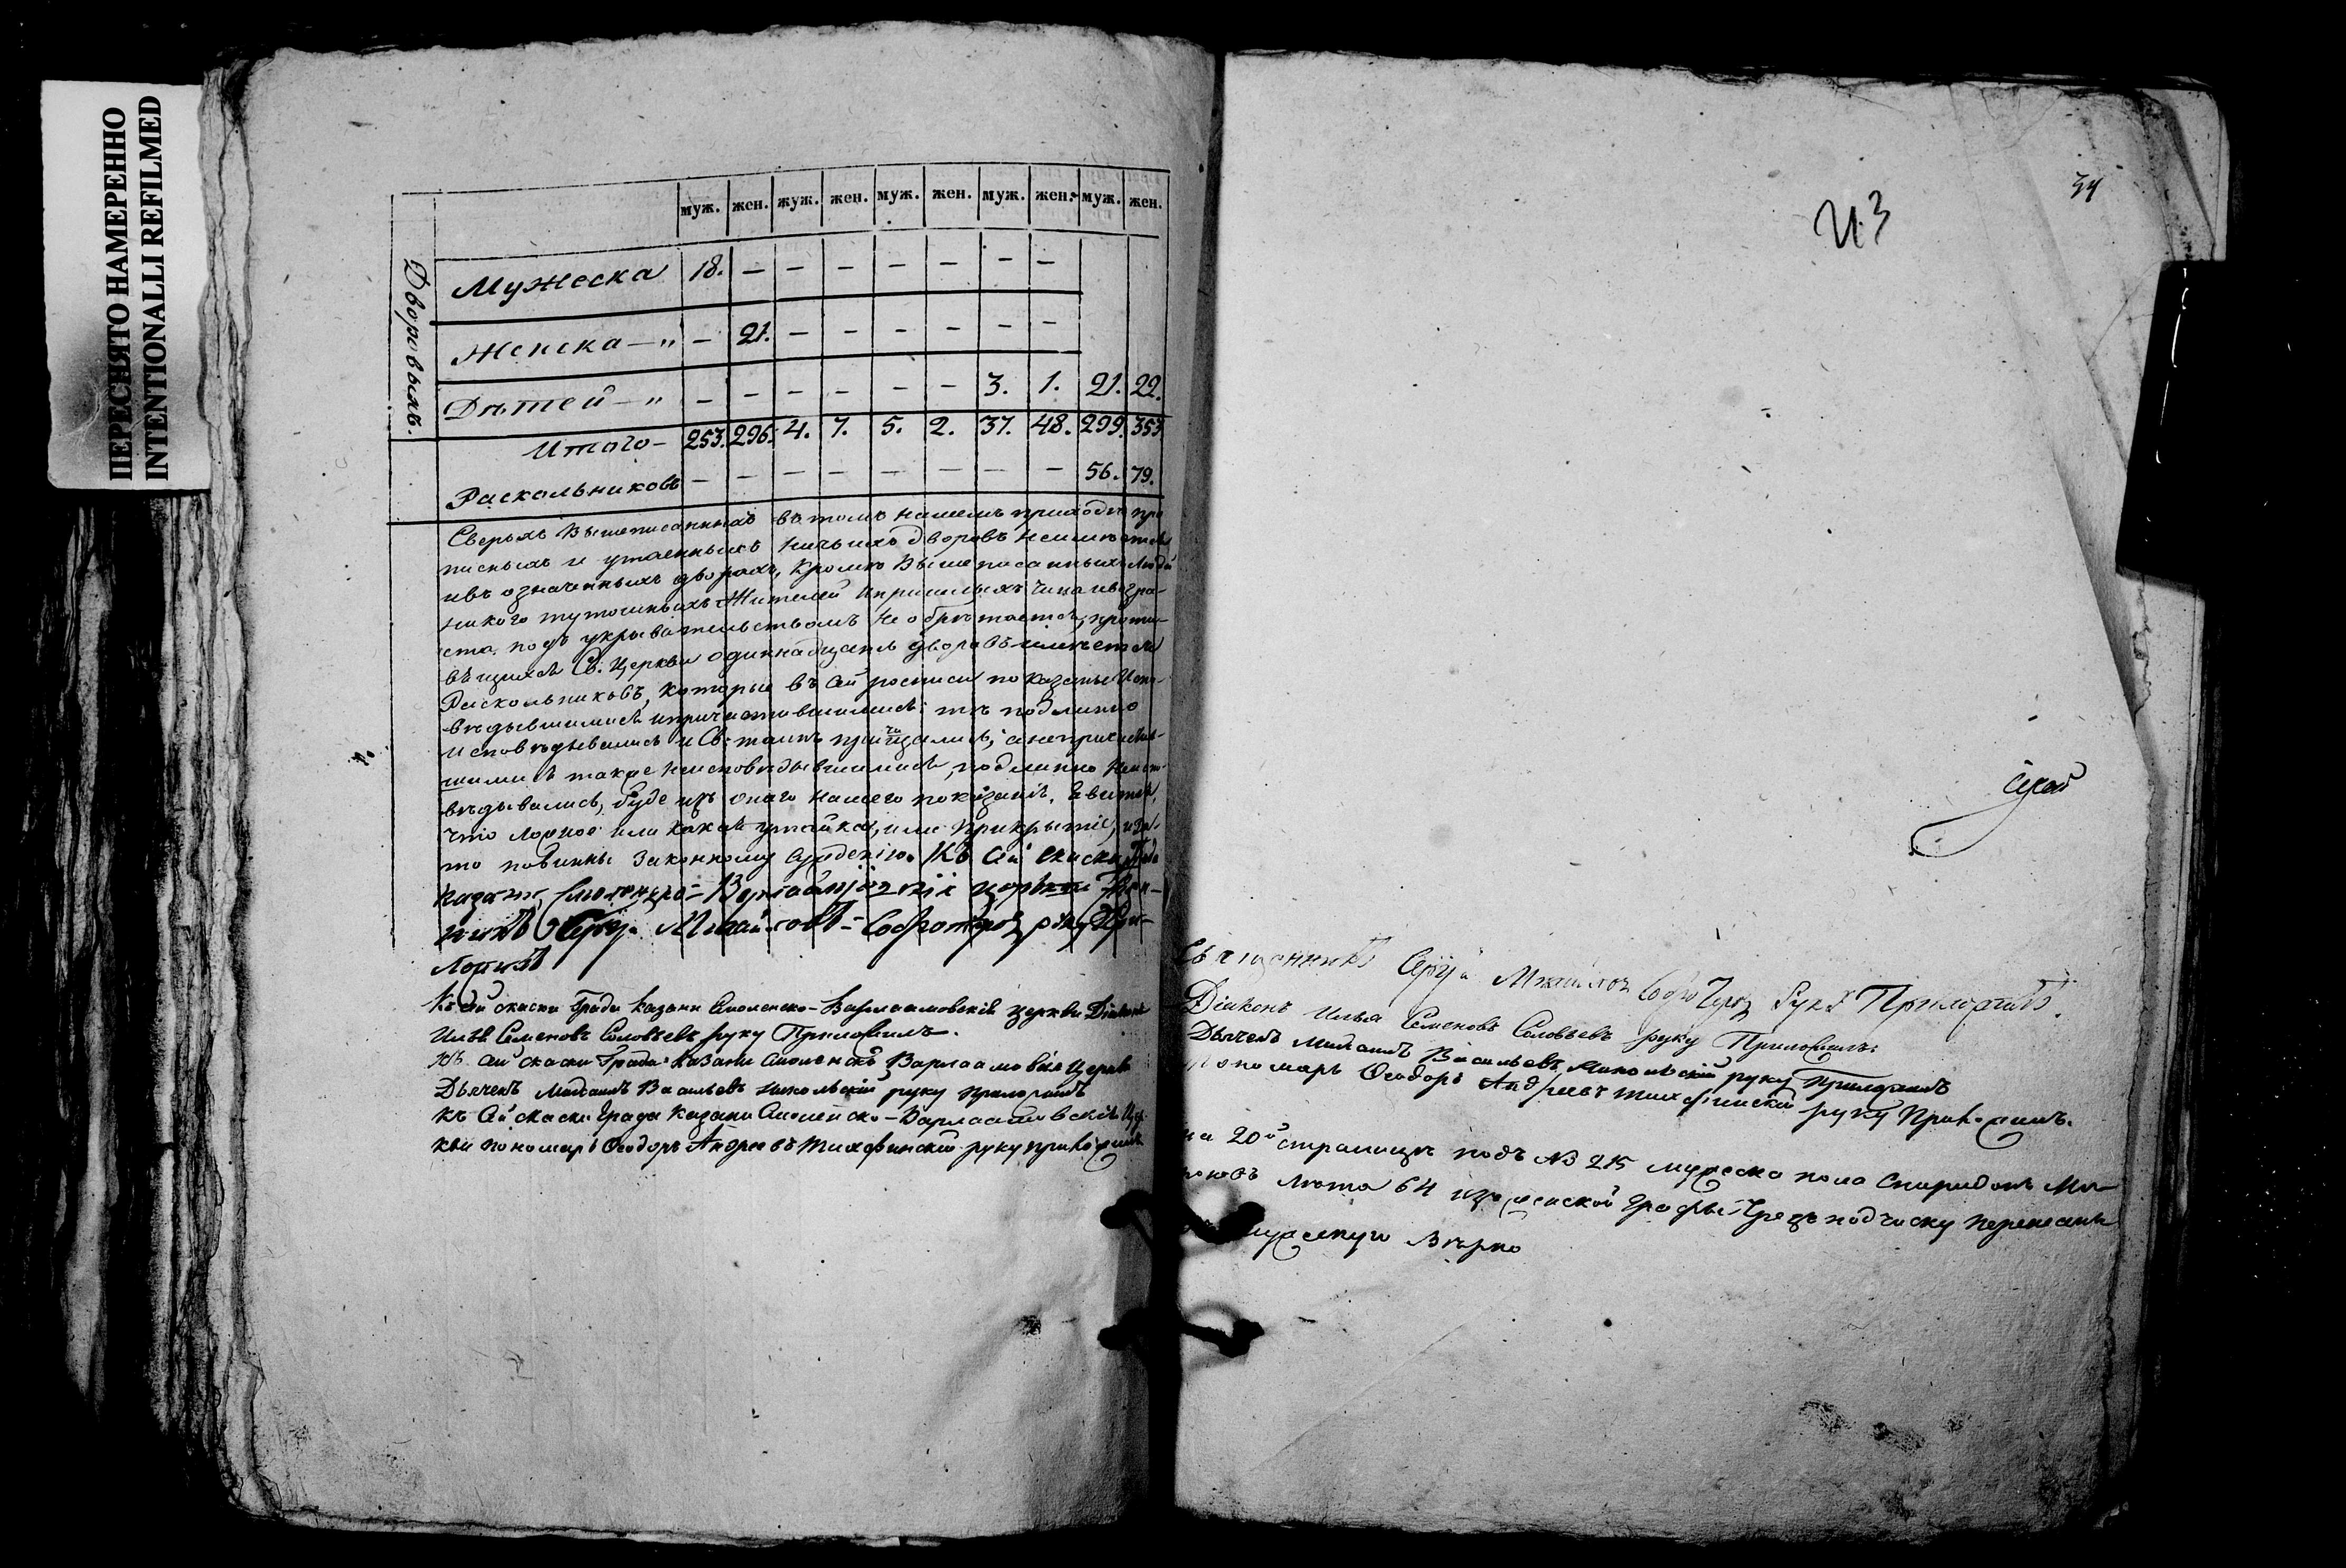 ПЕРЕСНЯТО НАМЕРЕННО
INTENTIONALLI REFILMED
муж. жен. жуж. жен. муж. жен. муж. жен. муж. жен.
Дворовыхъ.
Мужеска 18. — — — — — — —
Женска — „ — 21. — — — — — —
Дѣтей — „ — — — — — — 3. 1. 21. 22.
Итого — 253. 296. 4. 7. 5. 2. 37. 48. 299. 353
Раскольниковъ — — — — — — — — 56. 79.
Сверьхъ вышеписанныхъ въ томъ нашемъ приходѣ про
писныхъ и утаенныхъ ничьихъ дворовъ неимѣется
ивъ означенныхъ дворахъ, кромѣ вышеписанныхъ людей
никого тутошныхъ жителей ипришлыхъ чина ивозра-
ста, подъ укрывательствомъ не обрѣтается, проти-
вящихся Св. Церкви одиннадцать дворовъ имѣется
Раскольниковъ, которые въ сей росписи показаны Испо-
вѣдывшимися ипричастившимися: тѣ подлинно
исповѣдывались и Св. таинъ причащались; а неприча
шимися также неисповѣдывшимися, подлинно неиспо-
вѣдывались, буде изъ онаго нашего показанія, явится,
что ложное или какая утайка, или прикрытіе, иза-
то повинны законному сужденію. Къ сей скаски Града
Казани, Смоленско = церкви
Михайловъ = руку При-
ложилъ
Къ сей скаски Града Казани Смоленско-Варлаамовскія церкви Діаконъ
Илья Семеновъ Соловьевъ руку Приложилъ.
Къ сей скаски Града Казани Смоленско Варлаамовскія Церкви
Дьячекъ Михаилъ Васильевъ Никольскій руку приложилъ
Къ сей скаски Града Казани Смоленско-Варлаамовскія Цер
кви пономарь Ѳеодоръ Андреевъ Тихвинскій руку приложилъ
34
И.3
Священникъ Сергій Михайловъ Руку Приложилъ.
Діаконъ Илья Семеновъ Соловьевъ руку Приложилъ:
Дьячекъ Михаилъ Васильевъ Никольскій руку Приложилъ
Пономарь Ѳеодоръ Андреевъ Тихвинскій руку Приложилъ.
на 20й страницѣ подъ № 215 мужеска пола Спиридонъ
лѣта 64 изъ женской графы чрезъ подчиску перенесенъ
мужескую Вѣрно